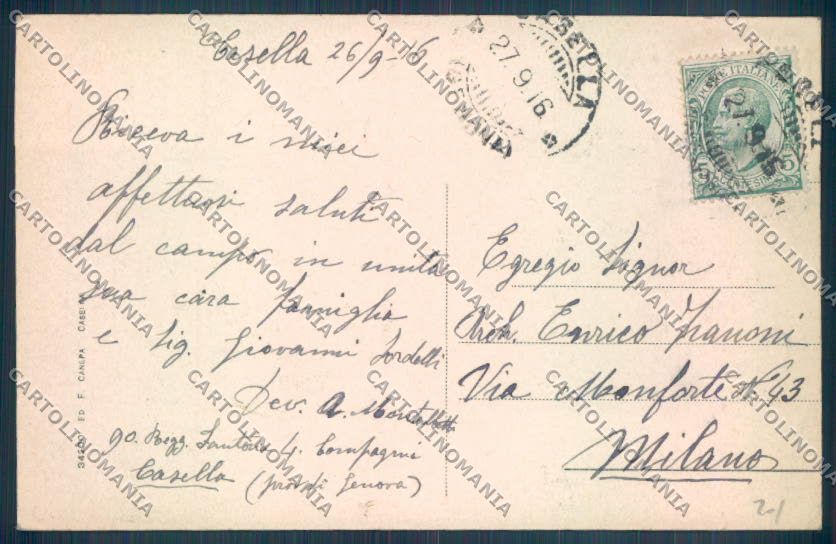 Casella 26/9-16
Riceva i miei
affettuosi saluti
dal campo in unita
sua cara famiglia
e Sig. Giovanni Sordelli
Dev. A.
90. Regg. Fanteria 4. Compagnia
Casella (prov. di Genova)
CASELLA
27.9.16
POSTE ITALIANE
5
27.9.16
Egregio Signor
Arch. Enrico Zanoni
Via Monforte No 43
Milano
ED F. CANEPA CASELLA
CARTOLINOMANIA